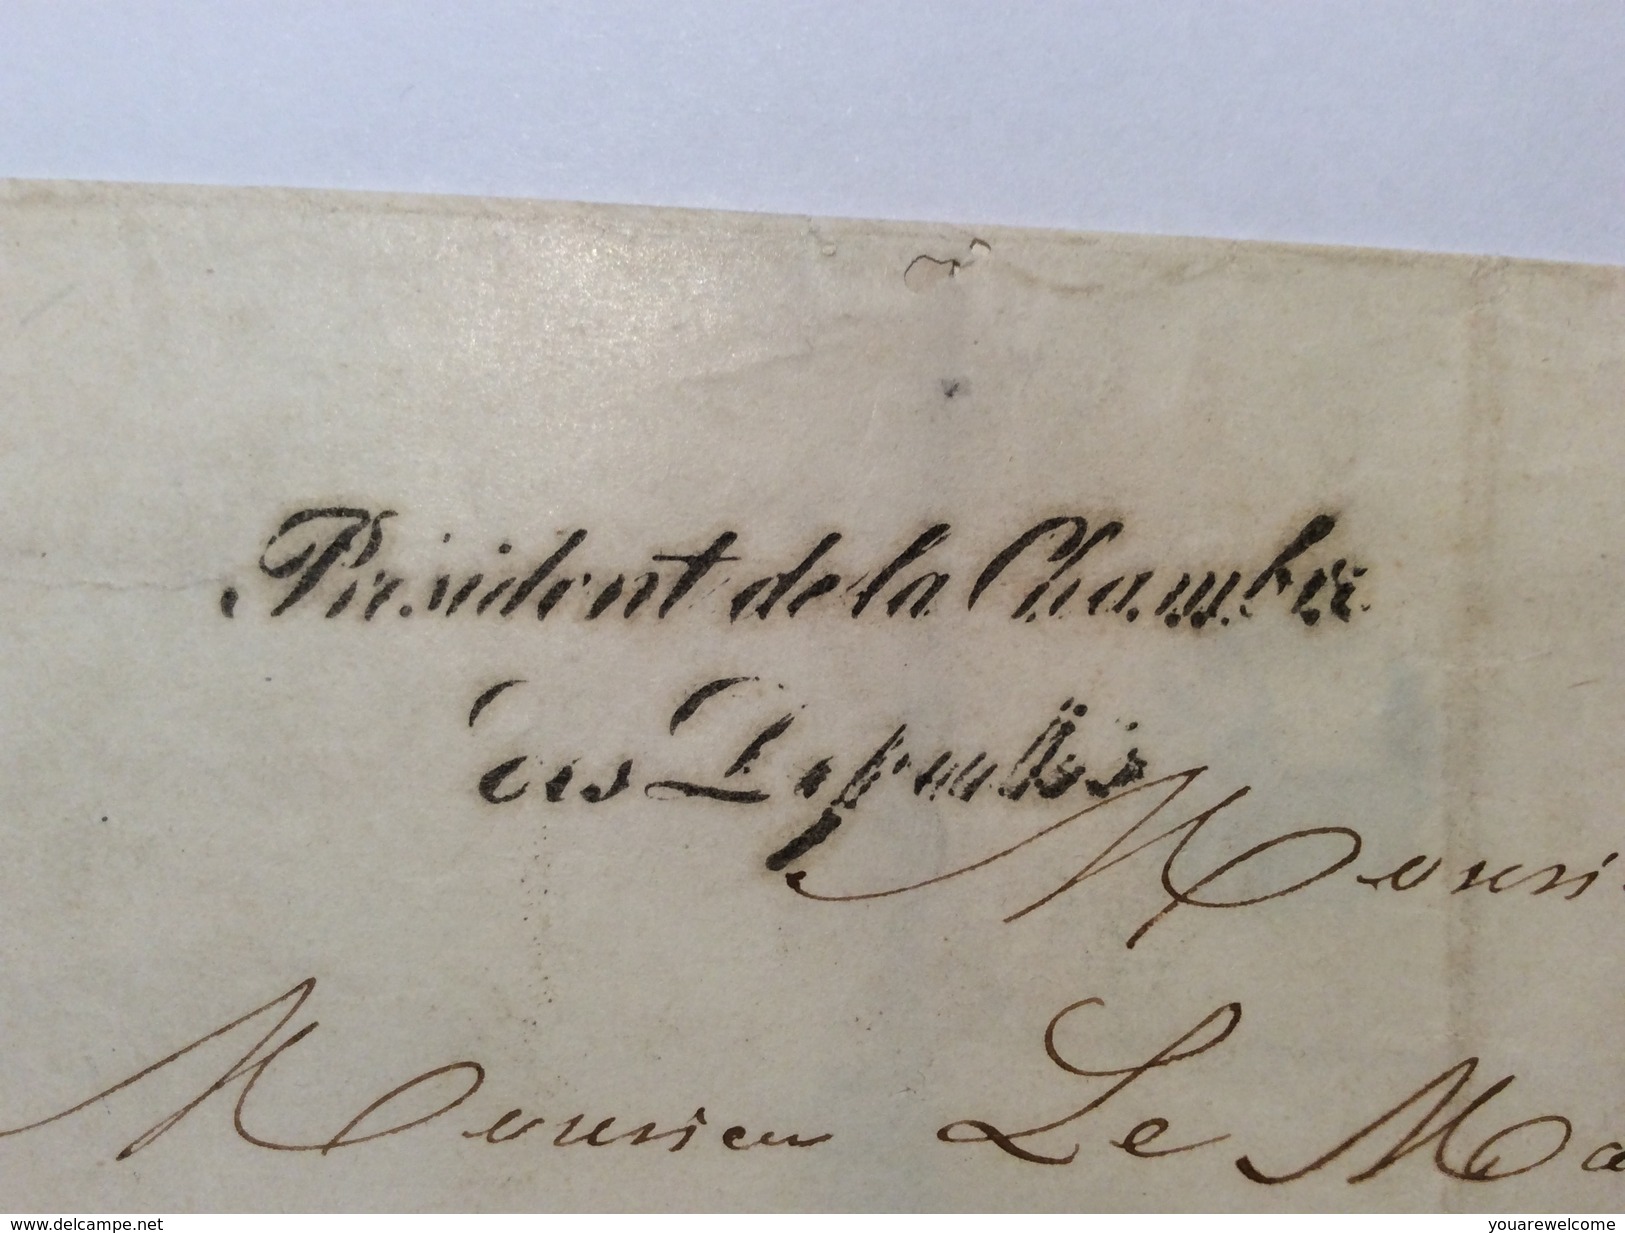 Président de la Chambre
des Députés
Monsi
Monsieur Le Ma
www.delcampe.net
youarewelcome